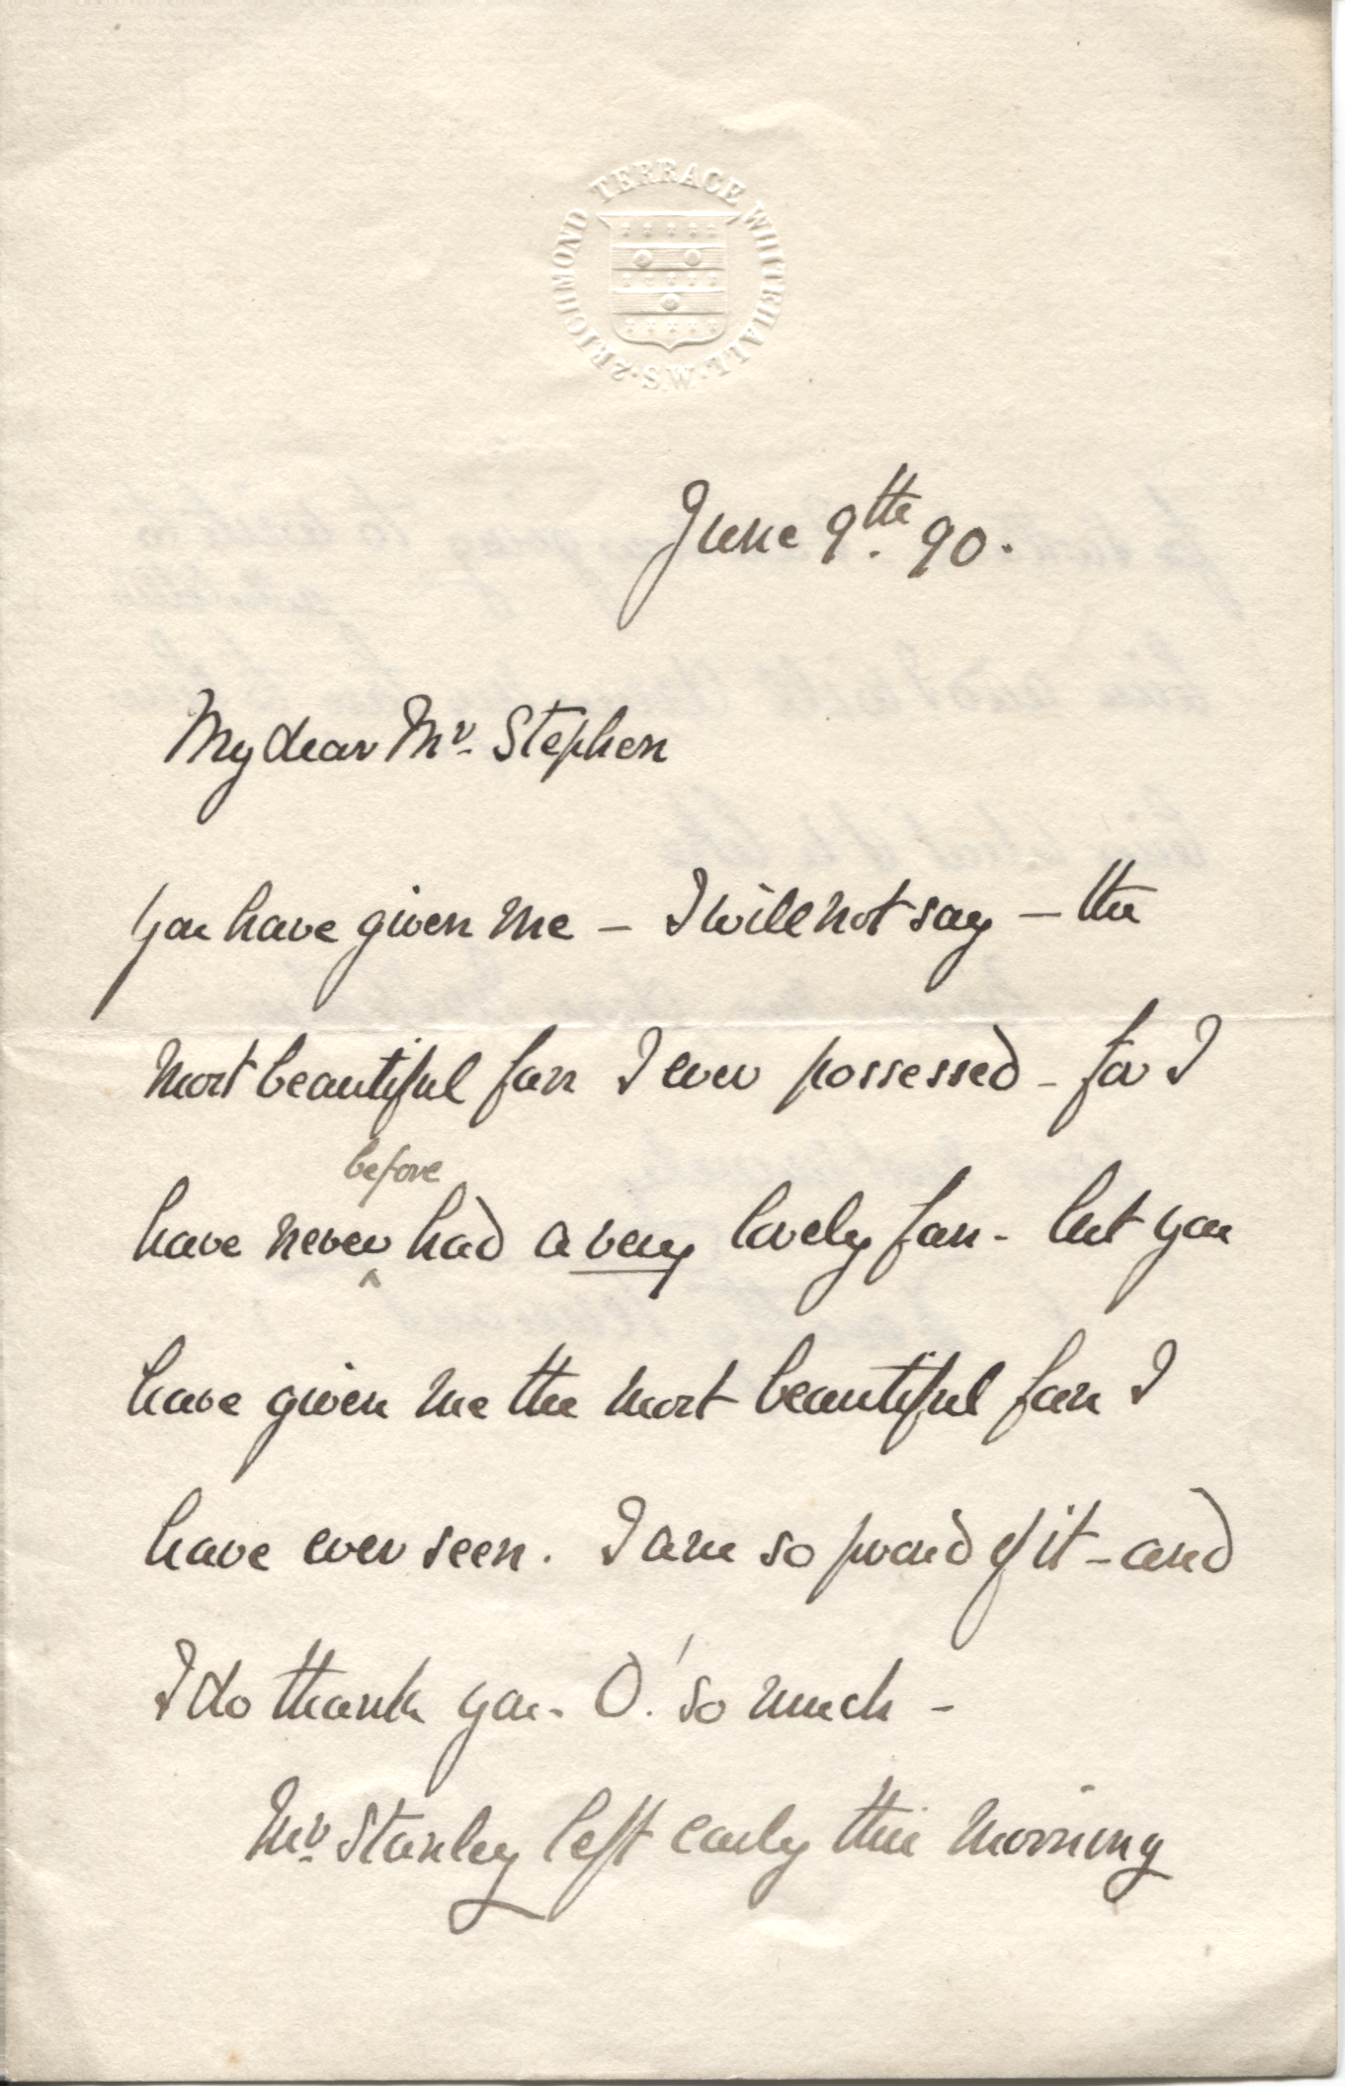 2 RICHMOND TERRACE WHITEHALL · S.W. ·
June 9th. 90.
My dear Mr. Stephen
you have given me – I will not say – the
most beautiful fan I ever possessed – for I
before
have never ^ had a very lovely fan – but you
have given me the most beautiful fan I
have ever seen. I am so proud of it – and
I do thank you – O! so much –
Mr. Stanley left early this morning